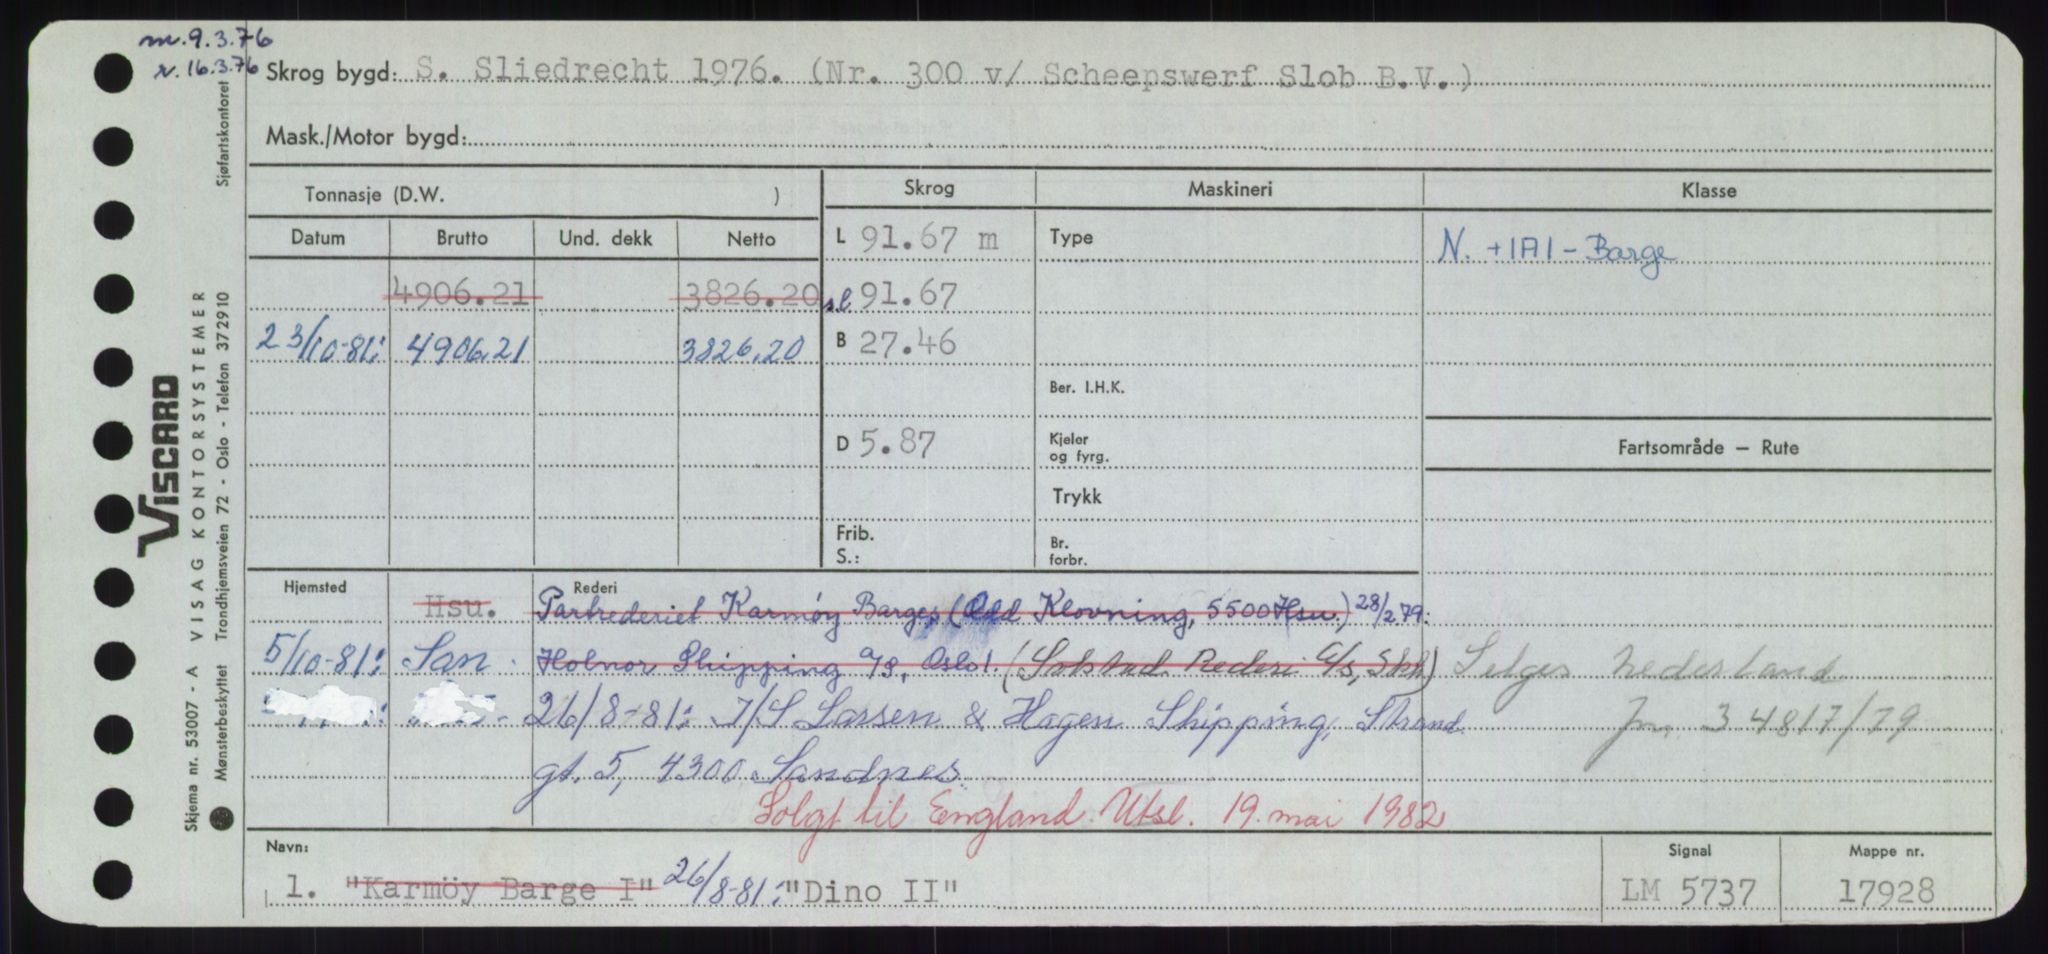 m. 9.3.76
r. 16.3.76
Skrog bygd: S. Sliedrecht 1976. (Nr. 300 v/ Scheepswerf Slob B.V.)
Mask./Motor bygd:
Tonnasje (D.W. )
Skrog
Maskineri
Klasse
Datum Brutto Und. dekk Netto
L 91.67 m
Type
N. +1A1 - Barge
4906.21 3826.20
sl 91.67
23/10-81: 4906.21 3826.20
B 27.46
Ber. I.H.K.
D 5.87
Kjeler
og fyrg.
Fartsområde — Rute
Trykk
Frib.
S.:
Br.
forbr.
Hjemsted
Rederi
Hsu. Partrederiet Karmøy Barges (Odd Klovning, 5500 Hsu.) 28/2 79:
5/10-81: San. Holnor Shipping a/s, Oslo 1. (Solstad Rederi A/S, Skh) Selges Nederland
26/8-81: I/S Lassen & Hagen Shipping, Strand
jnr. 34817/79
gt. 5, 4300 Sandnes
Solgt til England. Utsl. 19. mai 1982
Navn:
1. "Karmöy Barge I" 26/8-81: "Dino II"
Signal
LM 5737
Mappe nr.
17928
Skjema nr. 53007 - A VISAG KONTORSYSTEMER
VISCARD
Mønsterbeskyttet Trondhjemsveien 72 - Oslo - Telefon 372910
Sjøfartskontoret